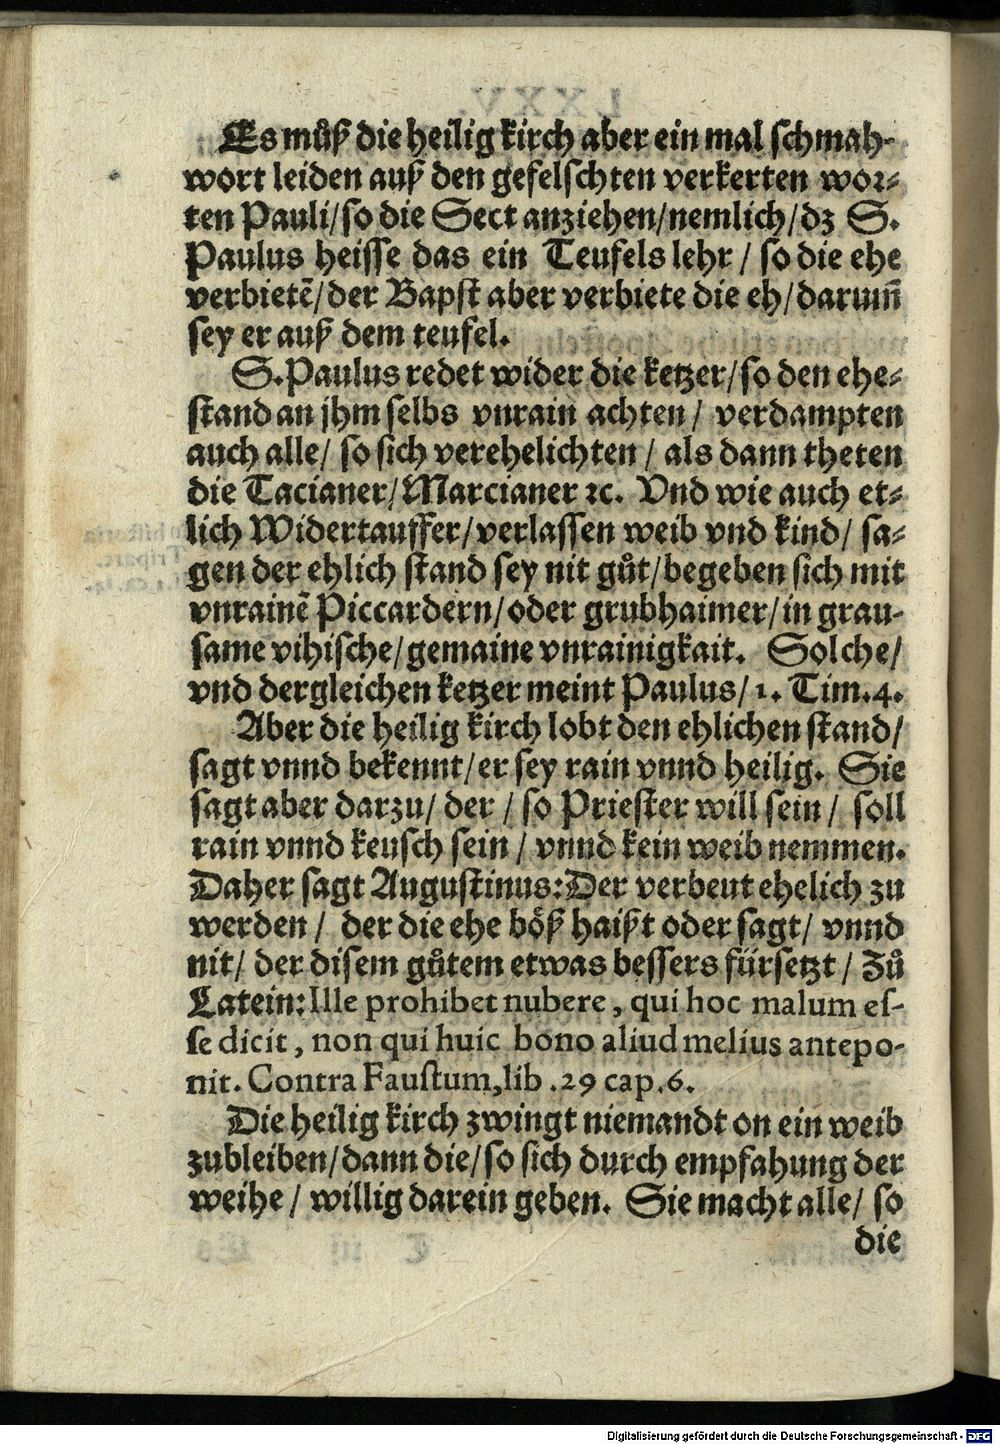 Es můß die heilig kirch aber ein mal schmah-
wort leiden auß den gefelschten verkerten wor-
ten Pauli/so die Sect anziehen/nemlich/dz S.
Paulus heisse das ein Teufels lehr / so die ehe
verbietẽ/der Bapst aber verbiete die eh/darum̃
sey er auß dem teufel.
S. Paulus redet wider die ketzer/so den ehe-
stand an jhm selbs vnrain achten/ verdampten
auch alle/ so sich verehelichten / als dann theten
die Tacianer/Marcianer ꝛc. Vnd wie auch et-
lich Widertauffer/verlassen weib vnd kind/ sa-
gen der ehlich stand sey nit gůt/begeben sich mit
vnrainẽ Piccardern/oder grubhaimer/in grau-
same vihische/gemaine vnrainigkait. Solche/
vnd dergleichen ketzer meint Paulus/1. Tim.4.
Aber die heilig kirch lobt den ehlichen stand/
sagt vnnd bekennt/er sey rain vnnd heilig. Sie
sagt aber darzu/ der / so Priester will sein / soll
rain vnnd keusch sein / vnnd kein weib nemmen.
Daher sagt Augustinus:Der verbeut ehelich zu
werden / der die ehe böß haißt oder sagt/ vnnd
nit/ der disem gůtem etwas bessers fürsetzt / Zů
Latein: Ille prohibet nubere, qui hoc malum es-
se dicit, non qui huic bono aliud melius antepo-
nit. Contra Faustum, lib .29 cap.6.
Die heilig kirch zwingt niemandt on ein weib
zubleiben/dann die/so sich durch empfahung der
weihe / willig darein geben. Sie macht alle/ so
die
Digitalisierung gefördert durch die Deutsche Forschungsgemeinschaft - DFG